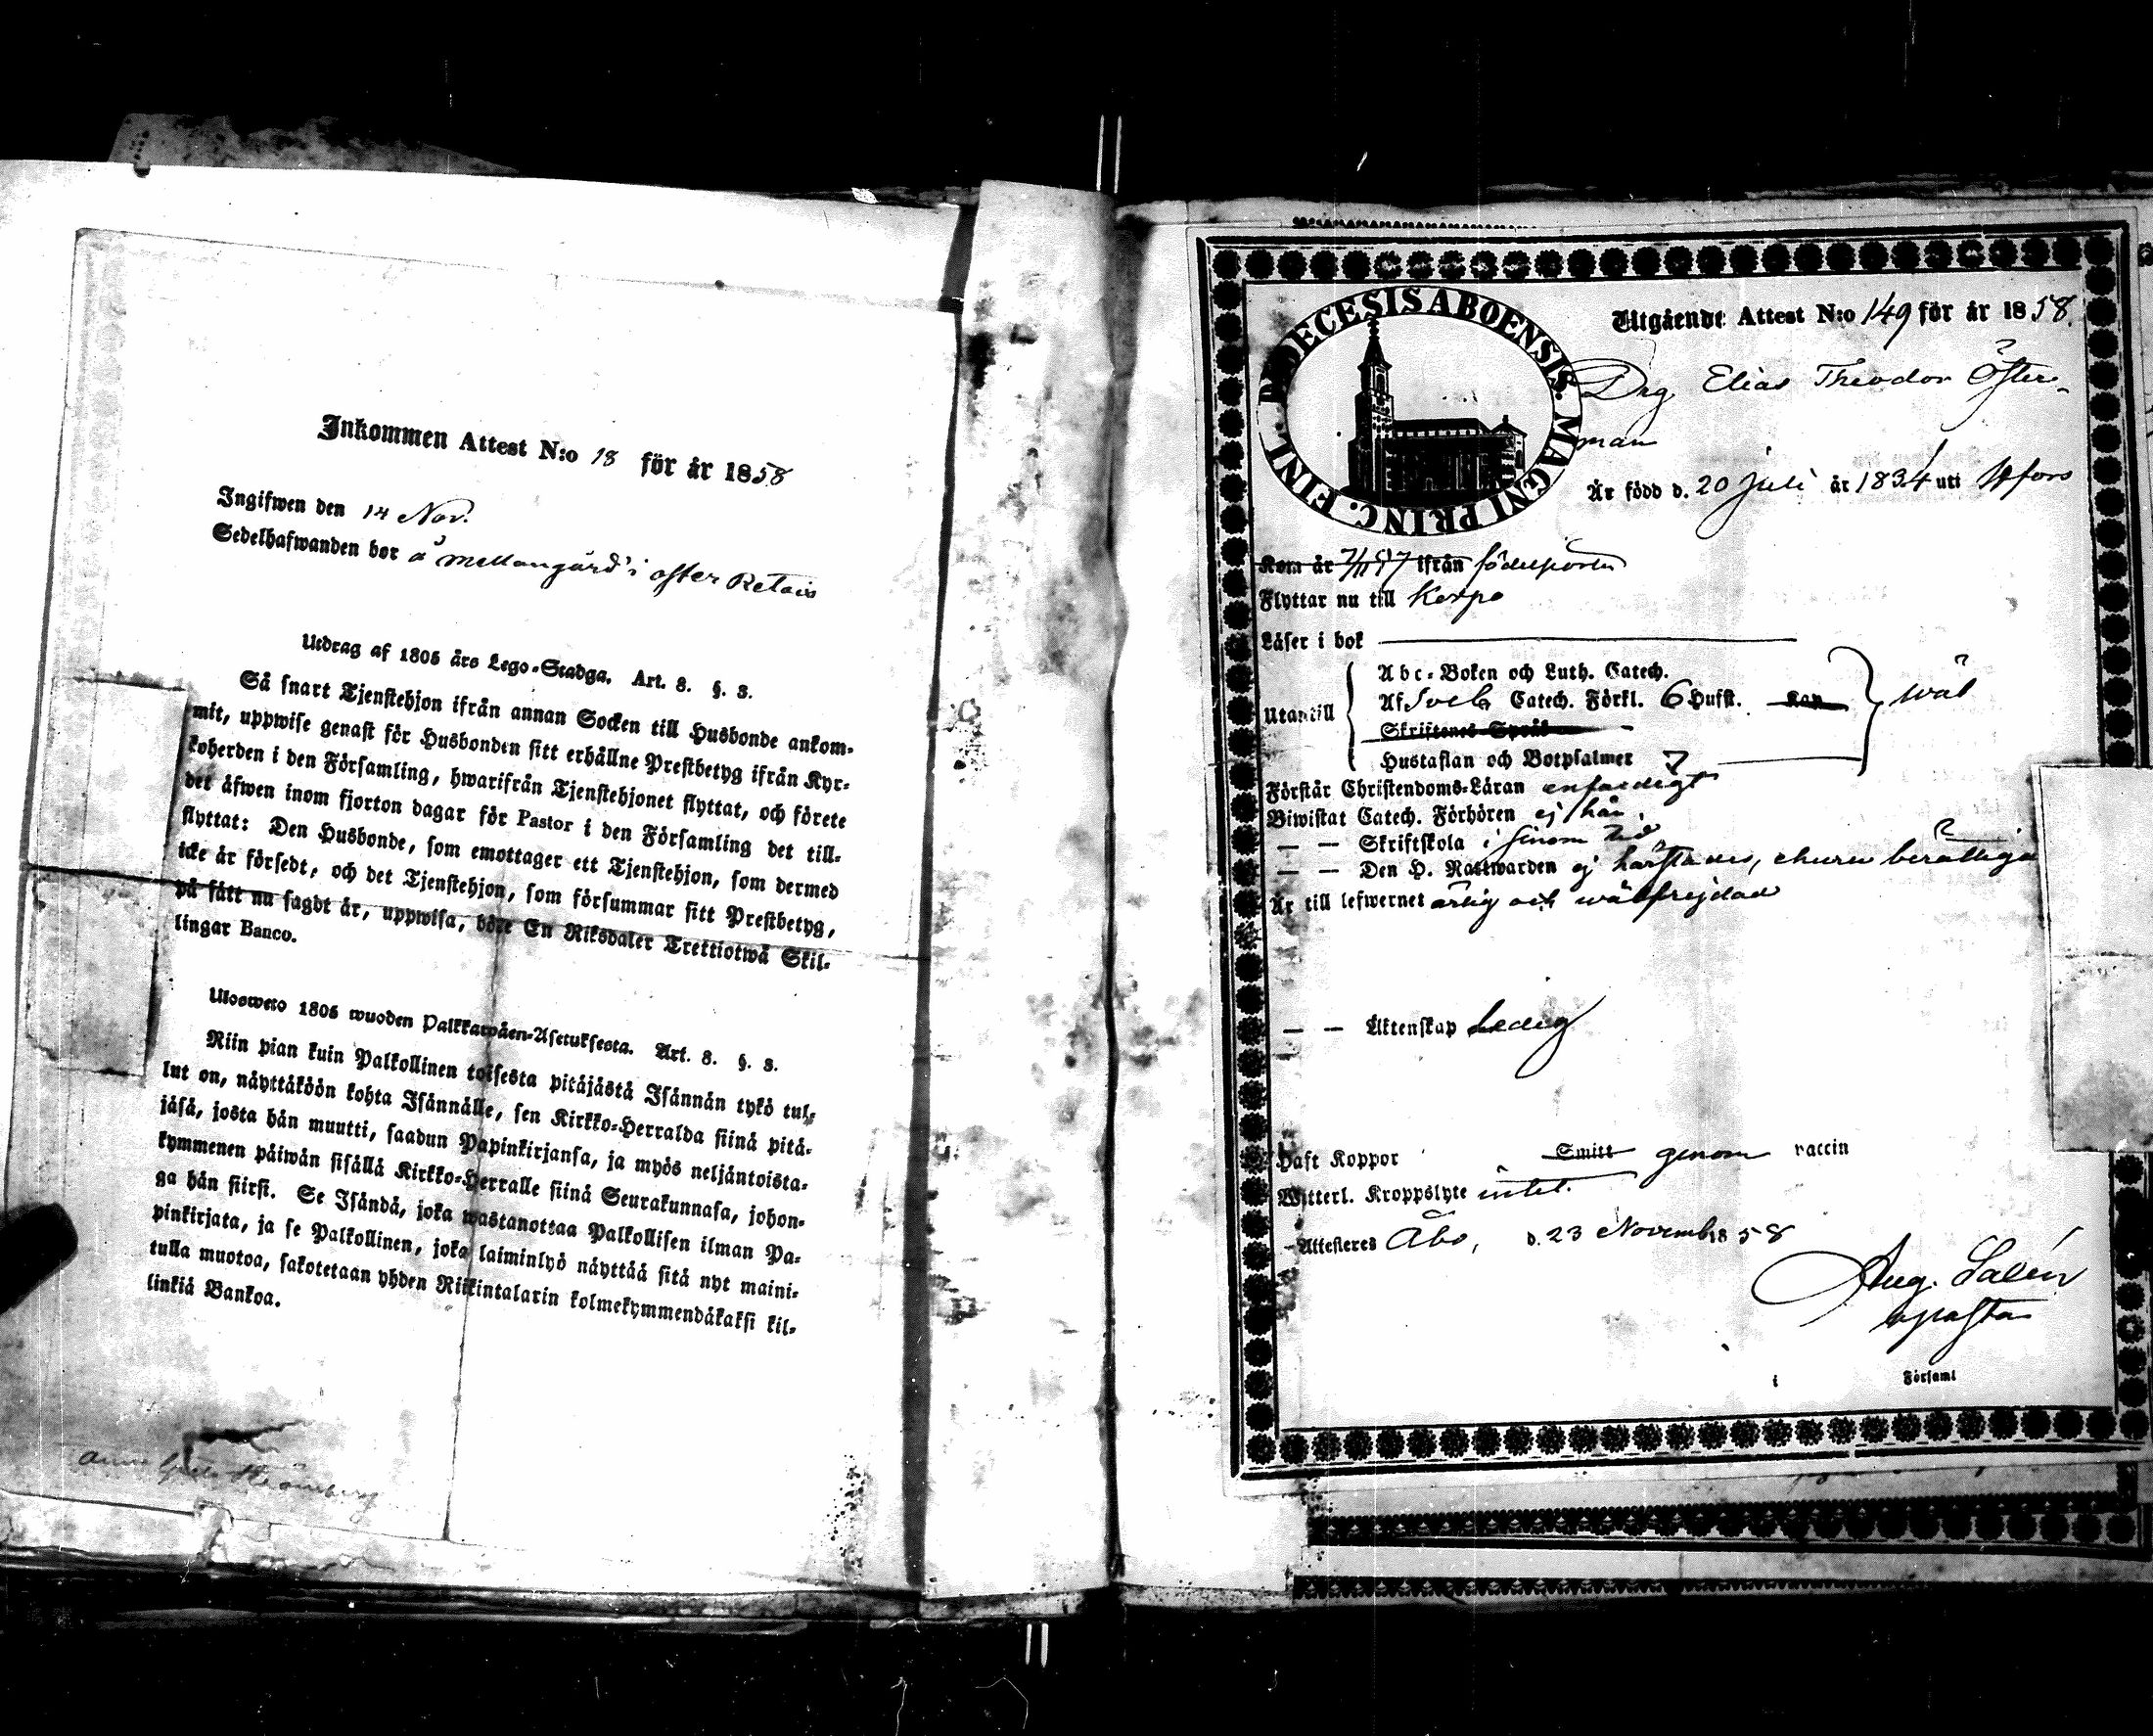 Inkommen Attest N:o 18 för år 1858
Ingifwen den 14 Nov.
Sedelhafwanden bor å Mellangård i öster Retais
Utdrag af 1805 års Lego-Stadga. Art. 8. §. 3.
Så snart Tjenstehjon ifrån annan Socken till Husbonde ankom-
mit, uppwise genast för Husbonden sitt erhållne Prestbetyg ifrån Kyr-
koherden i den Församling, hwarifrån Tjenstehjonet flyttat, och förete
det äfwen inom fjorton dagar för Pastor i den Församling det till-
flyttat: Den Husbonde, som emottager ett Tjenstehjon, som dermed
icke är försedt, och det Tjenstehjon, som försummar sitt Prestbetyg,
på sätt nu sagdt är, uppwisa, böte En Riksdaler Trettiotwå Skil-
lingar Banco.
Uloswето 1805 wuoden Palkkawäen-Asetuksesta. Art. 8. §. 3.
Niin pian kuin Palkollinen toisesta pitäjästä Isännän tykö tul-
lut on, näyttäköön kohta Isännälle, sen Kirkko-Herralda siinä pitä-
jäsä, josta hän muutti, saadun Papinkirjansa, ja myös neljäntoista-
kymmenen päiwän sisällä Kirkko-Herralle siinä Seurakunnasa, johon-
ga hän siirsi. Se Isändä, joka wastanottaa Palkollisen ilman Pa-
pinkirjata, ja se Palkollinen, joka laiminlyö näyttää sitä nyt maini-
tulla muotoa, sakotetaan yhden Riikintalarin kolmekymmendäkaksi kil-
linkiä Bankoa.
DIOECESIS ABOENSIS. MAGNI PRINC. FINL.
Utgående Attest N:o 149 för år 1858.
Drg Elias Theodor Öster-
man
Är född d. 20 Juli år 1834 uti Hfors
Kom år 7/11 57 ifrån födelseorten
Flyttar nu till Korpo
Läser i bok
Abc-Boken och Luth. Catech.
Utantill Af Sveb. Catech. Förkl. 6 Hufst. Kap wäl
Skriftenes Språk
Hustaflan och Botpsalmer 7
Förstår Christendoms-Läran enfaldigt
Biwistat Catech. Förhören ej här.
— — Skriftskola i sinom tid
— — Den H. Nattwarden ej härstädes, ehuru berättigad
Är till lefwernet ärlig och wälfrejdad
— — Äktenskap Ledig
Haft Koppor Smitt genom vaccin
Witterl. Kroppslyte intet.
Attesteres Åbo, d. 23 Novemb 1858
Aug. Salén
i Församl